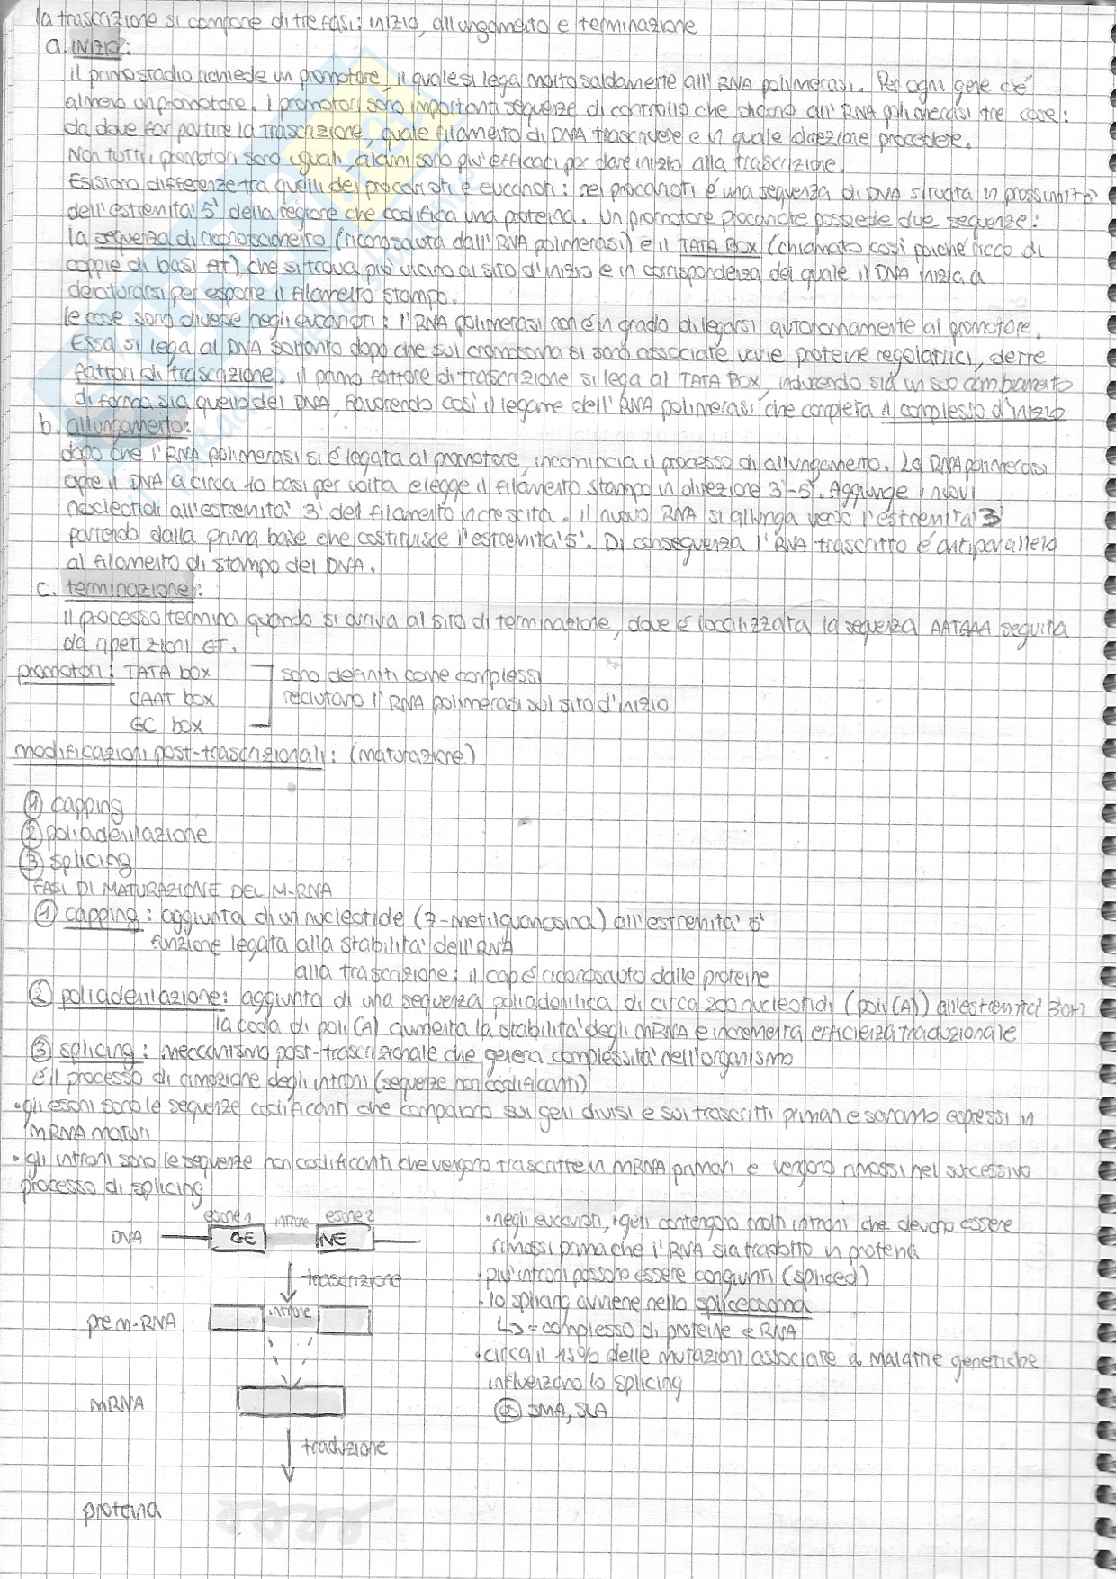 la trascrizione si compone di tre fasi: inizio, allungamento e terminazione
a. INIZIO:
il primo stadio richiede un promotore, il quale si lega molto saldamente all'RNA polimerasi. Per ogni gene c'è
almeno un promotore. I promotori sono importanti sequenze di controllo che dicono all'RNA polimerasi tre cose:
da dove far partire la trascrizione, quale filamento di DNA trascrivere e in quale direzione procedere.
Non tutti i promotori sono uguali, alcuni sono più efficaci per dare inizio alla trascrizione.
Esistono differenze tra quelli dei procarioti e eucarioti: nei procarioti è una sequenza di DNA situata in prossimità
dell'estremità 5' della regione che codifica una proteina. Un promotore procariote possiede due sequenze:
la sequenza di riconoscimento (riconosciuta dall'RNA polimerasi) e il TATA BOX (chiamato così poiché ricco di
coppie di basi AT), che si trova più vicino al sito d'inizio e in corrispondenza del quale il DNA inizia a
denaturarsi per esporre il filamento stampo.
le cose sono diverse negli eucarioti: l'RNA polimerasi non è in grado di legarsi autonomamente al promotore.
Essa si lega al DNA soltanto dopo che sul cromosoma si sono associate varie proteine regolatrici, dette
fattori di trascrizione. il primo fattore di trascrizione si lega al TATA BOX, inducendo sia un suo cambiamento
di forma sia quello del DNA, favorendo così il legame dell'RNA polimerasi, che completa il complesso d'inizio
b. allungamento:
dopo che l'RNA polimerasi si è legata al promotore, incomincia il processo di allungamento. La RNA polimerasi
apre il DNA a circa 10 basi per volta e legge il filamento stampo in direzione 3'-5'. Aggiunge i nuovi
nucleotidi all'estremità 3' del filamento in crescita. il nuovo RNA si allunga verso l'estremità 3'
partendo dalla prima base che costituisce l'estremità 5'. Di conseguenza l'RNA trascritto è antiparallelo
al filamento di stampo del DNA.
c. terminazione:
il processo termina quando si arriva al sito di terminazione, dove è localizzata la sequenza AATAAA seguita
da ripetizioni GT.
promotori: TATA box
CAAT box
GC box
sono definiti come complessi
reclutano l'RNA polimerasi sul sito d'inizio
modificazioni post-trascrizionali: (maturazione)
① capping
② poliadenilazione
③ splicing
FASI DI MATURAZIONE DEL M-RNA
① capping: aggiunta di un nucleotide (7-metilguanosina) all'estremità 5'
funzione legata alla stabilità dell'RNA
alla trascrizione: il cap è riconosciuto dalle proteine
② poliadenilazione: aggiunta di una sequenza poliadenilica di circa 200 nucleotidi (poli(A)) all'estremità 3'OH
la coda di poli(A) aumenta la stabilità degli mRNA e incrementa efficienza traduzionale
③ splicing: meccanismo post-trascrizionale che genera complessità nell'organismo
è il processo di rimozione degli introni (sequenze non codificanti)
• gli esoni sono le sequenze codificanti che compaiono sui geni divisi e sui trascritti primari e saranno espressi in
mRNA maturi
• gli introni sono le sequenze non codificanti che vengono trascritte in mRNA primari e vengono rimossi nel successivo
processo di splicing
esone 1 introne esone 2
DNA GE NE
trascrizione
pre m-RNA introne
mRNA
traduzione
proteina
• negli eucarioti, i geni contengono molti introni che devono essere
rimossi prima che l'RNA sia tradotto in proteina
• più introni possono essere congiunti (spliced)
• lo splicing avviene nello spliceosoma
↳ = complesso di proteine e RNA
• circa il 15% delle mutazioni associate a malattie genetiche
influenzano lo splicing
es SMA, SLA